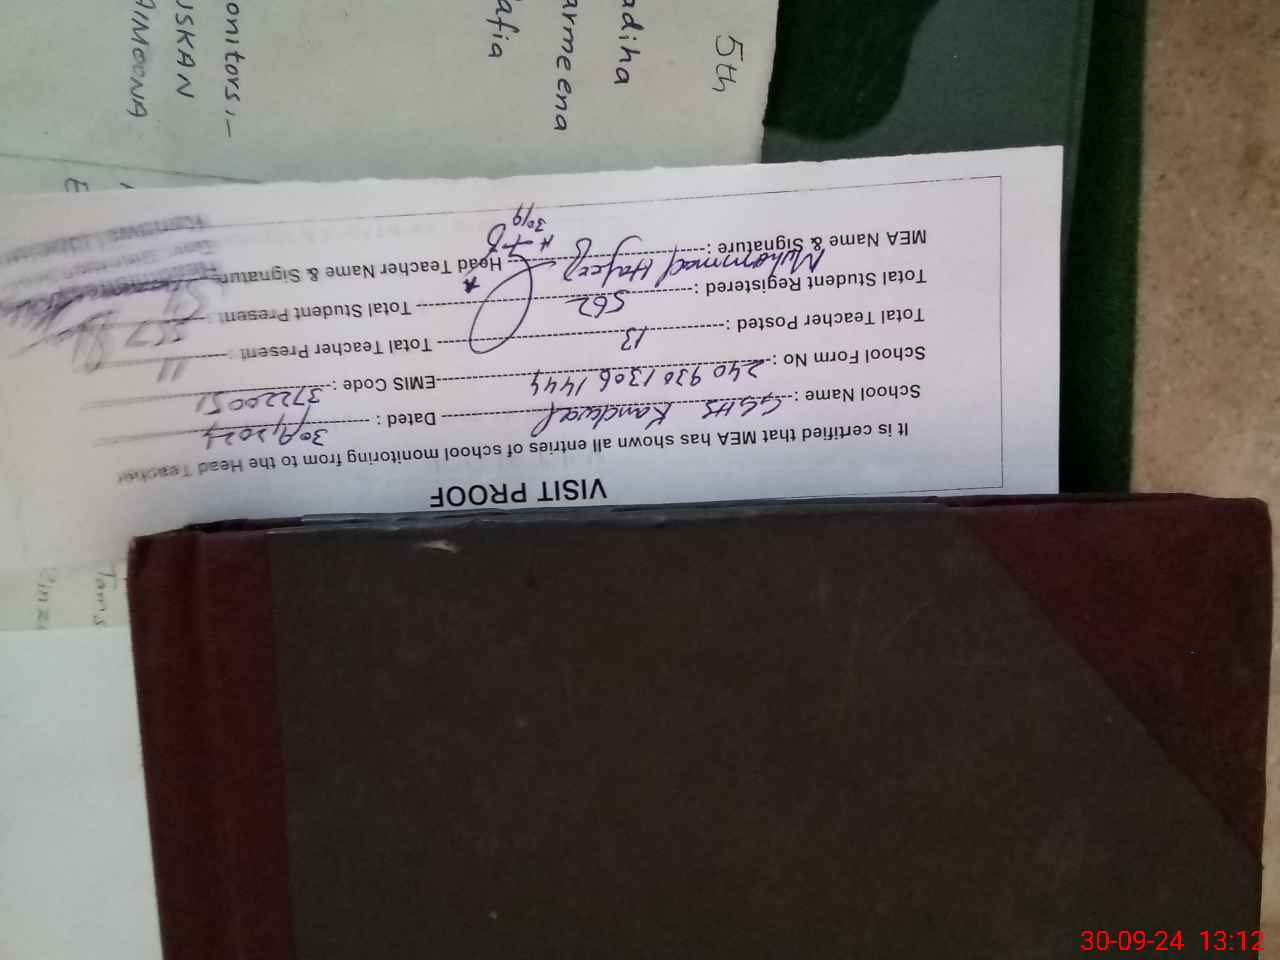 VISIT PROOF
It is certified that MEA has shown all entries of school monitoring from to the Head Teacher
School Name : GGHS Kandwal Dated : 30/9/2024
School Form No : 240 930 1306 1444 EMIS Code : 37220051
Total Teacher Posted : 13 Total Teacher Present : 11
Total Student Registered : 562 Total Student Present :
MEA Name & Signature : Muhammad Hafeez Head Teacher Name & Signature
30/9
5th
adiha
armeena
afia
onitors,-
USKAN
AIMOONA
Tams
30-09-24 13:12